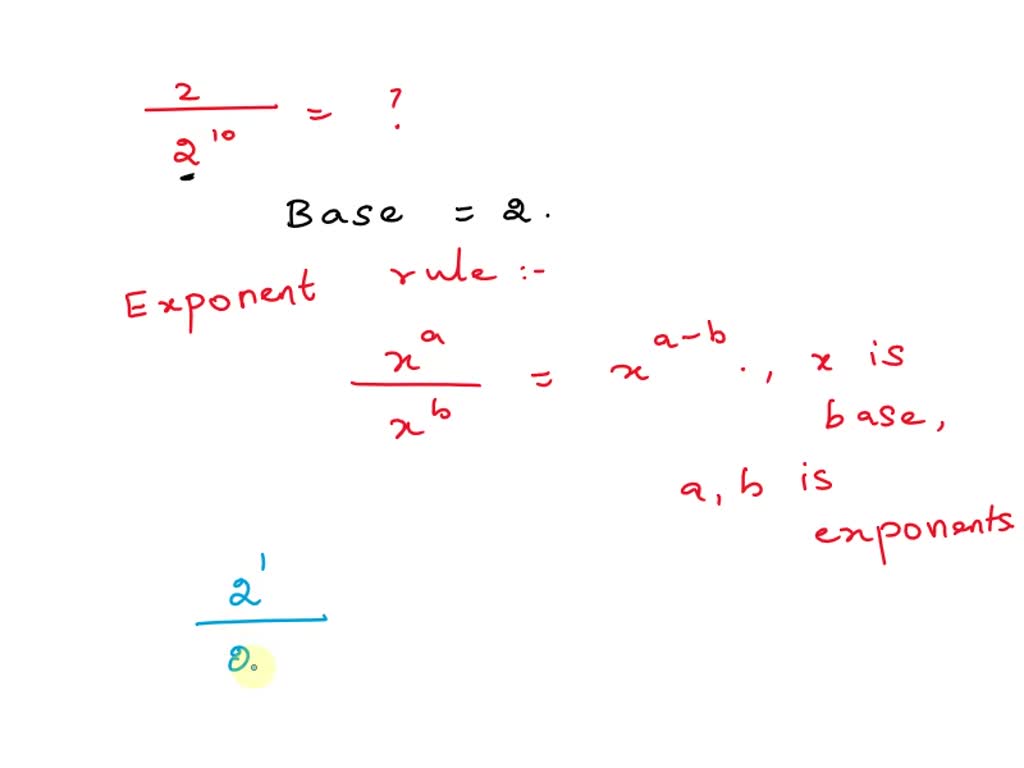 2 / 2^10 = ?
Base = 2.
Exponent rule :-
x^a / x^b = x^(a-b) . , x is
base,
a, b is
exponents
2^1